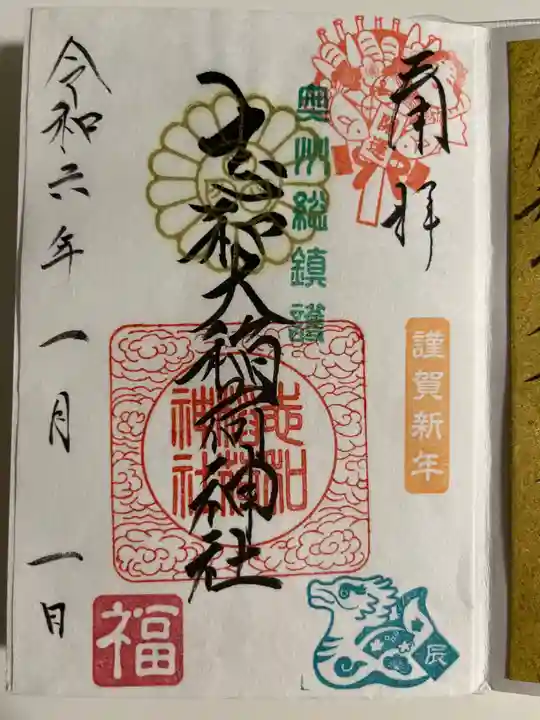 奉拝
謹賀新年
辰
奥州総鎮護
志和大稲荷神社
志和
稲荷
神社
令和六年一月一日
福